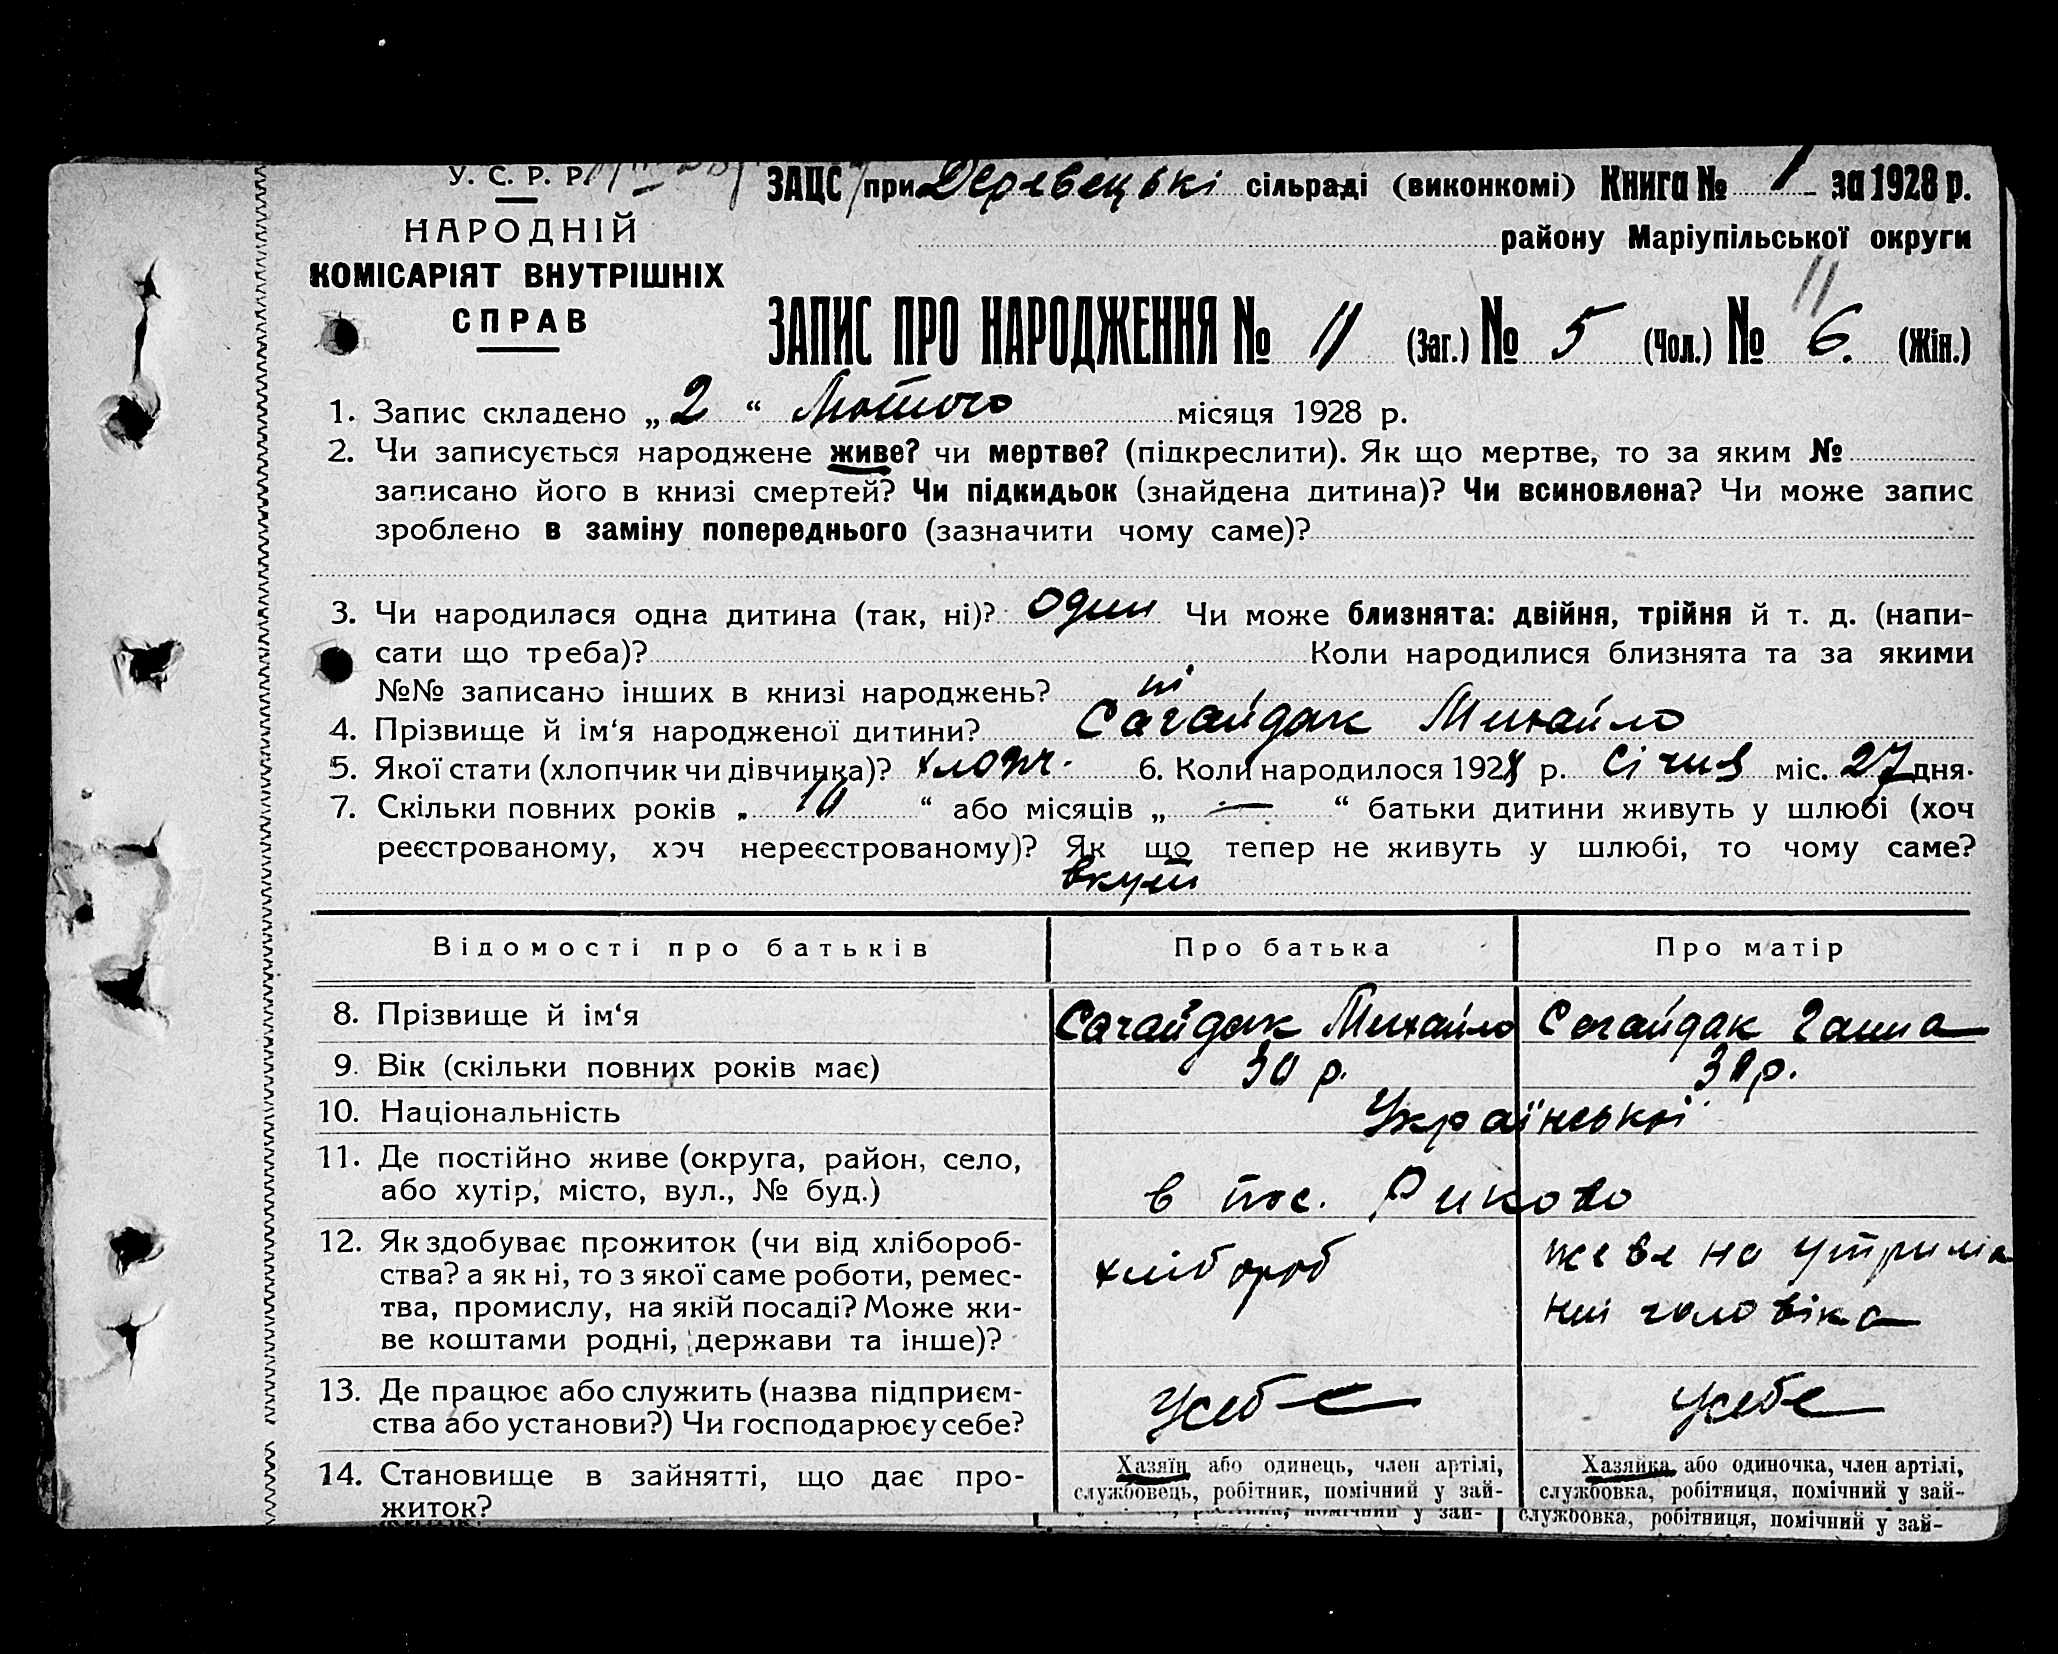 У. С. Р. Р.
НАРОДНІЙ
КОМІСАРІЯТ ВНУТРІШНІХ
СПРАВ
ЗАЦС при сільраді (виконкомі) Книга № 1 за 1928 р.
району Маріупільської округи
11
ЗАПИС ПРО НАРОДЖЕННЯ № 11 (Заг.) № 5 (Чол.) № 6. (Жін.)
1. Запис складено „ 2 “ Лютого місяця 1928 р.
2. Чи записується народжене живе? чи мертве? (підкреслити). Як що мертве, то за яким №
записано його в книзі смертей? Чи підкидьок (знайдена дитина)? Чи всиновлена? Чи може запис
зроблено в заміну попереднього (зазначити чому саме)?
3. Чи народилася одна дитина (так, ні)? один Чи може близнята: двійня, трійня й т. д. (напи-
сати що треба)? Коли народилися близнята та за якими
№№ записано інших в книзі народжень? ні
4. Прізвище й ім‘я народженої дитини? Сагайдак Михайло
5. Якої стати (хлопчик чи дівчинка)? хлопч. 6. Коли народилося 1928 р. Січня міс. 27 дня.
7. Скільки повних років „ 10 “ або місяців „ — “ батьки дитини живуть у шлюбі (хоч
реєстрованому, хоч нереєстрованому)? Як що тепер не живуть у шлюбі, то чому саме?
вкупі
Відомості про батьків Про батька Про матір
8. Прізвище й ім‘я Сагайдак Михайло Сагайдак Ганна
9. Вік (скільки повних років має) 30 р. р.
10. Національність Української
11. Де постійно живе (округа, район, село,
або хутір, місто, вул., № буд.) в пос. Риково
12. Як здобуває прожиток (чи від хлібороб-
ства? а як ні, то з якої саме роботи, ремес-
тва, промислу, на якій посаді? Може жи-
ве коштами родні, держави та інше)?
хлібороб
живе на утриман
ні чоловіка
13. Де працює або служить (назва підприєм-
ства або установи?) Чи господарює у себе?
Усебе Усебе
14. Становище в зайнятті, що дає про-
житок?
Хазяїн або одинець, член артілі,
службовець, робітник, помічний у зай-
Хазяйка або одиночка, член артілі,
службовка, робітниця, помічний у зай-
помічний у зай-
службовка, робітниця, помічний у зай-